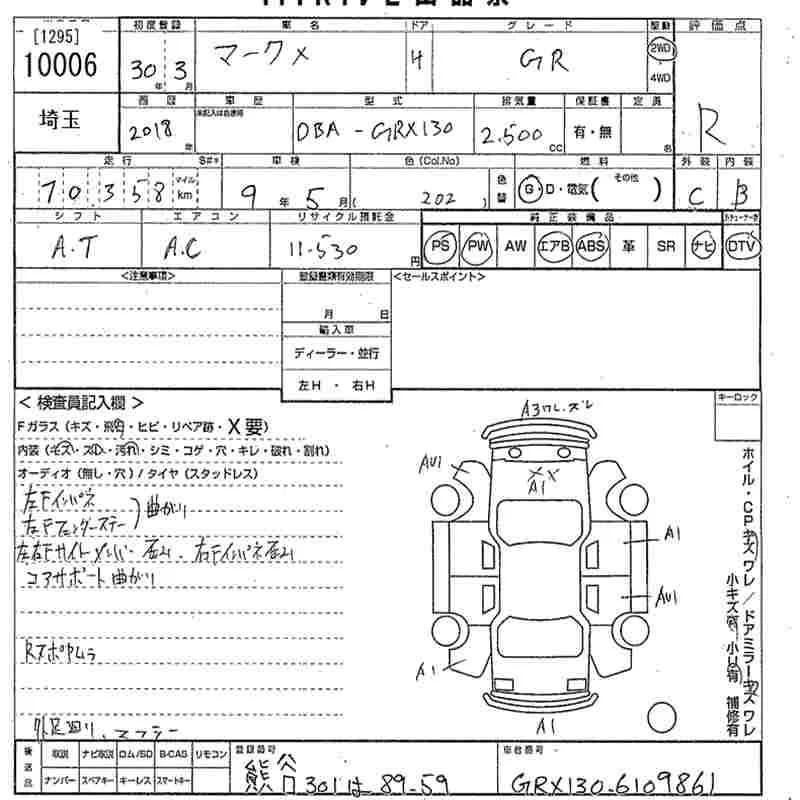 [1295]
10006
初度登録
30年 3月
車名
マークX
ドア
4
グレード
GR
駆動
2WD
4WD
評価点
R
埼玉
西暦
2018年
車歴
未記入は自家用
型式
DBA - GRX130
排気量
2.500cc
保証書
有・無
定員
名
走行
70358
マイル
km
S#*
車検
9年 5月
色(Col.No)
(202)
色替
燃料
G・D・電気( その他 )
外装
C
内装
B
シフト
A.T
エアコン
A.C
リサイクル預託金
11.530円
純正装備品
PS PW AW エアB ABS 革 SR ナビ DTV
<注意事項>
登録書類有効期限
月 日
輸入車
ディーラー・並行
左H ・ 右H
<セールスポイント>
<検査員記入欄>
キーロック
Fガラス (キズ・飛石・ヒビ・リペア跡・X要)
内装 (キズ・スレ・汚れ・シミ・コゲ・穴・キレ・破れ・割れ)
オーディオ (無し・穴) / タイヤ (スタッドレス)
左Fインパネ
右Fフェンダーステー
曲がり
左右Fサイドメンバー歪み、右Fインパネ歪み
コアサポート曲がり
外足廻り、マフラー
A3ワレ.ズレ
AU1
XX
A1
A1
AU1
A1
A1
ホイル・CPキズワレ/ドアミラーキズワレ
小キズ有 小U有 補修有
後送品
取説 ナビ取説 ロム/SD B-CAS リモコン
ナンバー スペアキー キーレス スマートキー
登録番号
熊谷 301 は 89-59
車台番号
GRX130-6109861